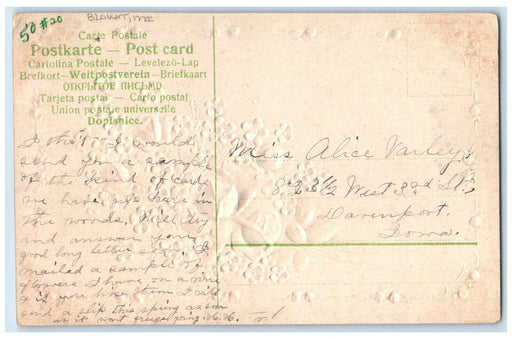 50 #20
BLOUNT,
Carte Postale
Postkarte — Post card
Cartolina Postale — Levelező-Lap
Brefkort—Weltpostverein—Briefkaart
ОТКРЫТОЕ ПИСЬМО.
Tarjeta postal — Carto postal
Union postale universelle
Dopisnice.
I tho't I would
send you a sample
of the kind of cards
we have up here in
the woods. Will try
and answer your
good long letter soon. I
mailed a sample of
flowers I have on a vine
& if you like them I will
send a slip this spring as soon
as it wont freeze going
Miss Alice Varley,
823½ West 3rd St.,
Davenport.
Iowa.